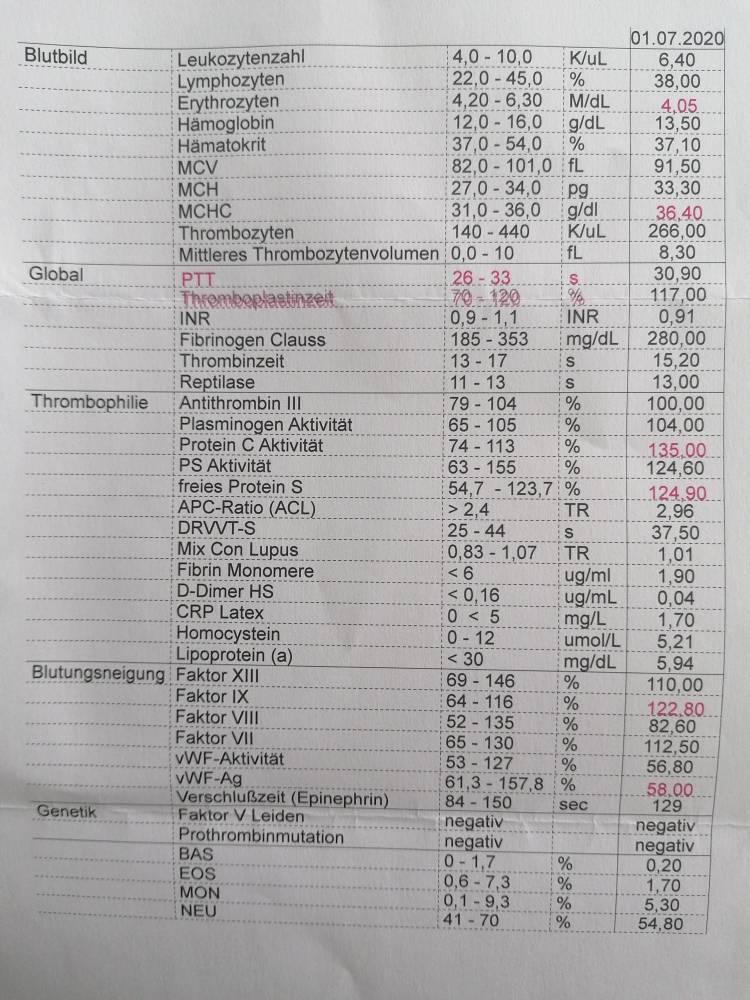 01.07.2020
Blutbild Leukozytenzahl 4,0 - 10,0 K/uL 6,40
Lymphozyten 22,0 - 45,0 % 38,00
Erythrozyten 4,20 - 6,30 M/dL 4,05
Hämoglobin 12,0 - 16,0 g/dL 13,50
Hämatokrit 37,0 - 54,0 % 37,10
MCV 82,0 - 101,0 fL 91,50
MCH 27,0 - 34,0 pg 33,30
MCHC 31,0 - 36,0 g/dl 36,40
Thrombozyten 140 - 440 K/uL 266,00
Mittleres Thrombozytenvolumen 0,0 - 10 fL 8,30
Global PTT 26 - 33 s 30,90
Thromboplastinzeit 70 - 120 % 117,00
INR 0,9 - 1,1 INR 0,91
Fibrinogen Clauss 185 - 353 mg/dL 280,00
Thrombinzeit 13 - 17 s 15,20
Reptilase 11 - 13 s 13,00
Thrombophilie Antithrombin III 79 - 104 % 100,00
Plasminogen Aktivität 65 - 105 % 104,00
Protein C Aktivität 74 - 113 % 135,00
PS Aktivität 63 - 155 % 124,60
freies Protein S 54,7 - 123,7 % 124,90
APC-Ratio (ACL) > 2,4 TR 2,96
DRVVT-S 25 - 44 s 37,50
Mix Con Lupus 0,83 - 1,07 TR 1,01
Fibrin Monomere < 6 ug/ml 1,90
D-Dimer HS < 0,16 ug/mL 0,04
CRP Latex 0 < 5 mg/L 1,70
Homocystein 0 - 12 umol/L 5,21
Lipoprotein (a) < 30 mg/dL 5,94
Blutungsneigung Faktor XIII 69 - 146 % 110,00
Faktor IX 64 - 116 % 122,80
Faktor VIII 52 - 135 % 82,60
Faktor VII 65 - 130 % 112,50
vWF-Aktivität 53 - 127 % 56,80
vWF-Ag 61,3 - 157,8 % 58,00
Verschlußzeit (Epinephrin) 84 - 150 sec 129
Genetik Faktor V Leiden negativ negativ
Prothrombinmutation negativ negativ
BAS 0 - 1,7 % 0,20
EOS 0,6 - 7,3 % 1,70
MON 0,1 - 9,3 % 5,30
NEU 41 - 70 % 54,80